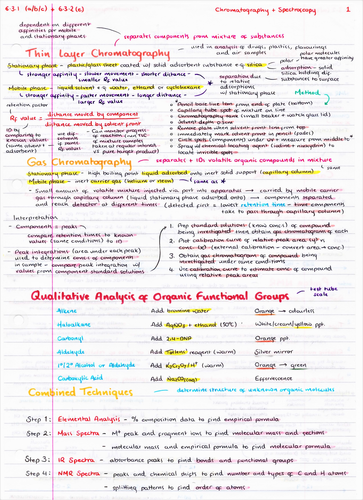 6.3.1 (a/b/c) + 6.3.2 (e)
Chromatography + Spectroscopy
1
dependent on different
affinities per mobile
and stationary phases
separates components from mixture of substances
Thin Layer Chromatography
used in analysis of drugs, plastics, flavourings
and air samples
Stationary phase - plastic/glass sheet coated with solid adsorbent substance e.g. silica
↳ stronger affinity - slower movement - shorter distance -
smaller Rf value
Mobile phase - liquid solvent e.g. water, ethanol or cyclohexane
↳ stronger affinity - faster movement - longer distance -
larger Rf value
polar molecules
have greater affinity
adsorption - solid
silica holding diff
substances to surface
separation due
to relative
adsorptions
w/ stationary
phase
Method
retention factor
Rf value = distance moved by component
distance moved by solvent front
• Pencil base line 1cm from end of plate (bottom)
• Capillary tube spot of mixture on line
• Chromatography tank (small beaker + watch glass lid)
• Solvent depth
• Remove plate when solvent front 1cm from top
• Immediately mark solvent front w/ pencil (order)
• Circle spots (components) under UV + measure from middle
• Spray w/ chemical locating agent (iodine + ninhydrin) to
locate invisible spots
ID by
comparing to
known values
(same solvent +
adsorbent)
Gas Chromatography
separates + IDs volatile organic compounds in mixture
Stationary phase - high boiling point liquid adsorbed onto inert solid support (capillary column)
Mobile phase - inert carrier gas (helium or neon)
same as
- Small amount of volatile mixture injected via port into apparatus → carried by mobile carrier
gas through capillary column (liquid stationary phase adsorbed onto) → components separated
and reach detector at different times (detected first = lowest retention times - how component
take to pass through capillary column)
Interpretation
- Components = peaks
compare retention times to known
values (same conditions) to ID
- Peak integrations (area under each peak)
used to determine concs of components
in sample - compare peak integration w/
values from component standard solutions
1. Prep standard solutions (known concs) of compound
being investigated + obtain gas chromatograms of each
2. Plot calibration curve of relative peak area against
conc (external calibration - convert area → conc)
3. Obtain gas chromatogram of compound being
investigated under same conditions
4. Use calibration curve to estimate conc of compound
using relative peak areas
Qualitative Analysis of Organic Functional Groups
test tube
scale
Alkene
Add bromine water
Orange → colourless
Haloalkane
Add AgNO3 + ethanol (50°C)
White/cream/yellow ppt.
Carbonyl
Add 2,4-DNP
Orange ppt
Aldehyde
Add Tollens' reagent (warm)
Silver mirror
1°/2° Alcohol or Aldehyde
Add K2Cr2O7/H+ (warm)
Orange → green
Carboxylic Acid
Add Na2CO3(aq)
Effervescence
Combined Techniques
determine structure of unknown organic molecules
Step 1: Elemental Analysis - % composition data to find empirical formula
Step 2: Mass Spectra - M+ peak and fragment ions to find molecular mass and sections
molecular mass and empirical formula to find molecular formula
Step 3: IR Spectra - absorbance peaks to find bonds and functional groups
Step 4: NMR Spectra - peaks and chemical shifts to find number and types of C and H atoms
- splitting patterns to find order of atoms